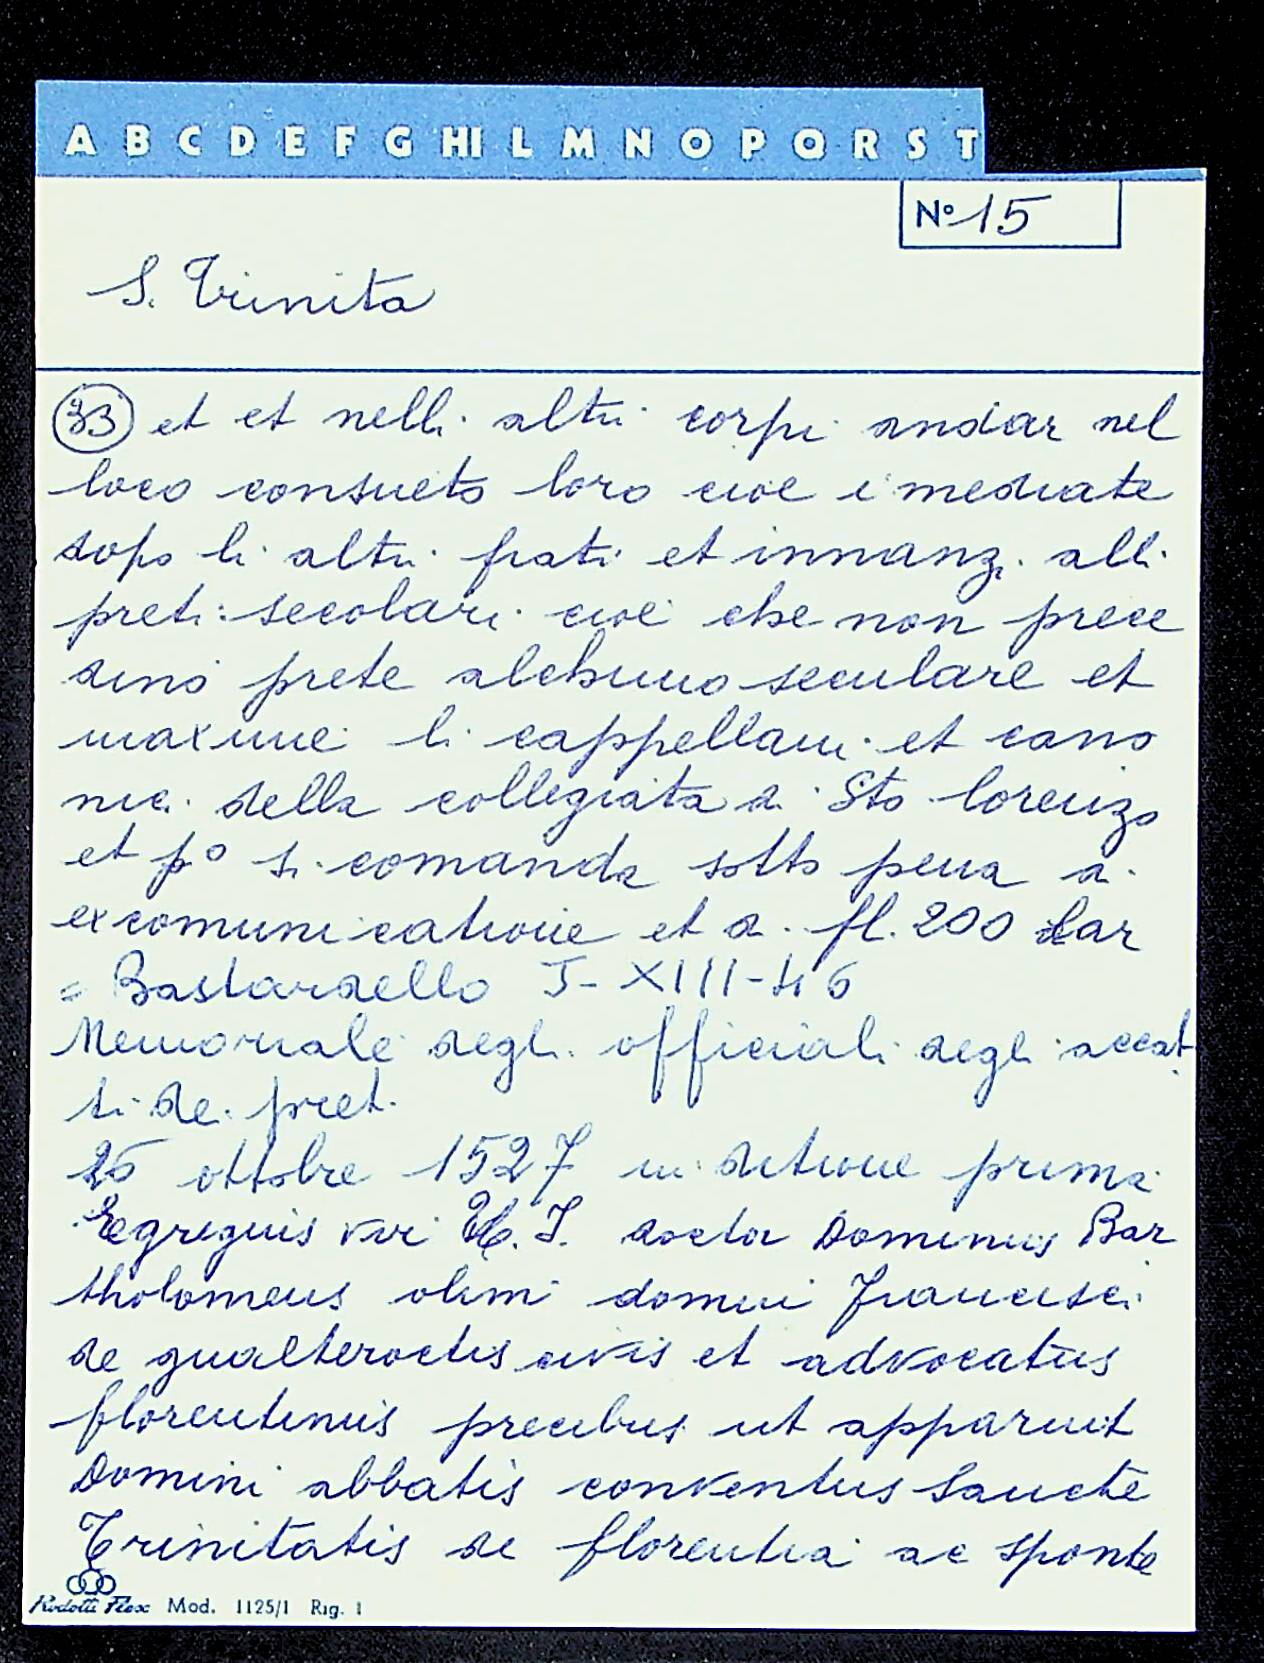 A B C D E F G HI L M N O P Q R S T
Nº 15
S. Trinita
33 et et nelli altri corpi andar nel
loco consueto loro cioe imediate
dopo li altri frati et innanzi alli
preti secolari cioè che non prece
dino prete alchuno seculare et
maxime li cappellani et cano
nici della collegiata di Sto lorenzo
et pº si comanda sotto pena di
excomunicatione et di fl. 200 lar
= Bastardello J-XIII-46
Memoriale degli officiali degli accat
ti de preti
26 ottobre 1527 in ditione prima
Egreguis vir J. doctor Dominus Bar
tholomeus olim domini Francisci
de gualteroctis civis et advocatus
florentinus precibus ut apparuit
Domini abbatis conventus Sancte
Trinitatis de florentia ac sponte
Rodotti Flex Mod. 1125/1 Rig. 1